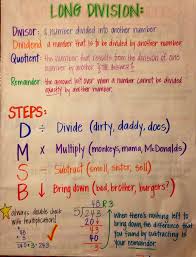 LONG DIVISION:
Divisor: A number divided into another number
Dividend: A number that is to be divided by another number
Quotient: the number that results from the division of one
number by another
Remainder: the amount left over when a number cannot be divided
equally by another number.
STEPS:
D ÷ Divide (dirty, daddy, does)
M x Multiply (monkeys, mama, McDonalds)
S - Subtract (smell, sister, sell)
B ↓ Bring down (bad, brother, burgers?)
always double check
with multiplication!
48 R3
5 243
20
43
40
3
When there's nothing left to
bring down, the difference that
you found by subtracting is
your remainder.
48